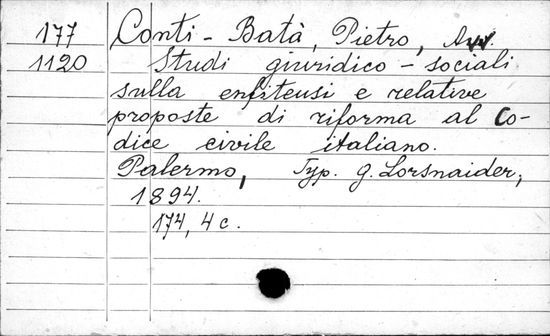 177 Conti - Batà, Pietro, Avv.
1120 Studi giuridico - sociali
sulla enfiteusi e relative
proposte di riforma al Co-
dice civile italiano.
Palermo, Typ. G. Lorsnaider,
1894.
174, 4 c.